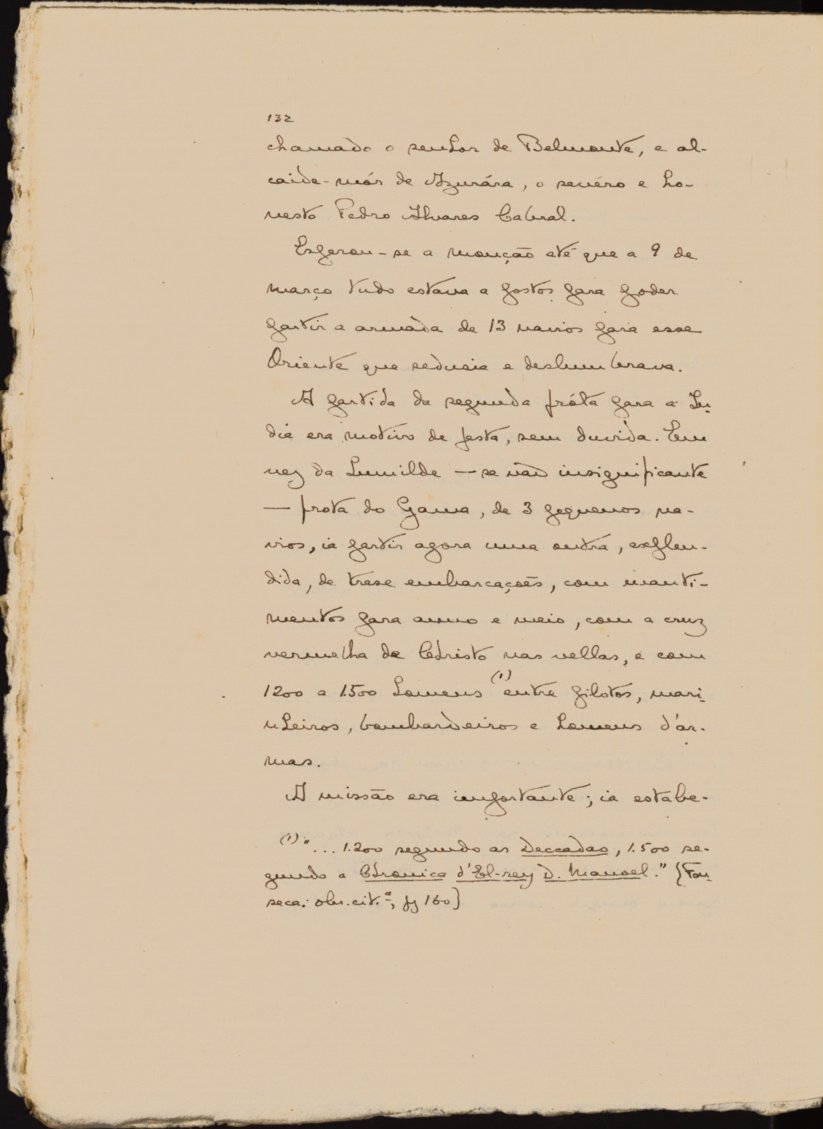 132
chamado o senhor de Belmonte, e al-
caide-mór de Azurára, o sevéro e ho-
nesto Pedro Alvares Cabral.
Esperou-se a monção até que a 9 de
março tudo estava a postos para poder
partir a armada de 13 navios para esse
Oriente que seduzia e deslumbrava.
A partida da segunda fróta para a In-
dia era motivo de festa, sem duvida. Em
vez da humilde — se não insignificante
— frota do Gama, de 3 pequenos na-
vios, ia partir agora uma outra, explen-
dida, de trese embarcações, com manti-
mentos para anno e meio, com a cruz
vermelha de Christo nas vellas, e com
1200 a 1500 homens (1) entre pilotos, mari-
nheiros, bombardeiros e homens d'ar-
mas.
A missão era importante; ia estabe-
(1) "... 1.200 segundo as Deccadas, 1.500 se-
gundo a Chronica d'El-rey D. Manoel." (Fon-
seca: obr. cit.ª, pg 160)